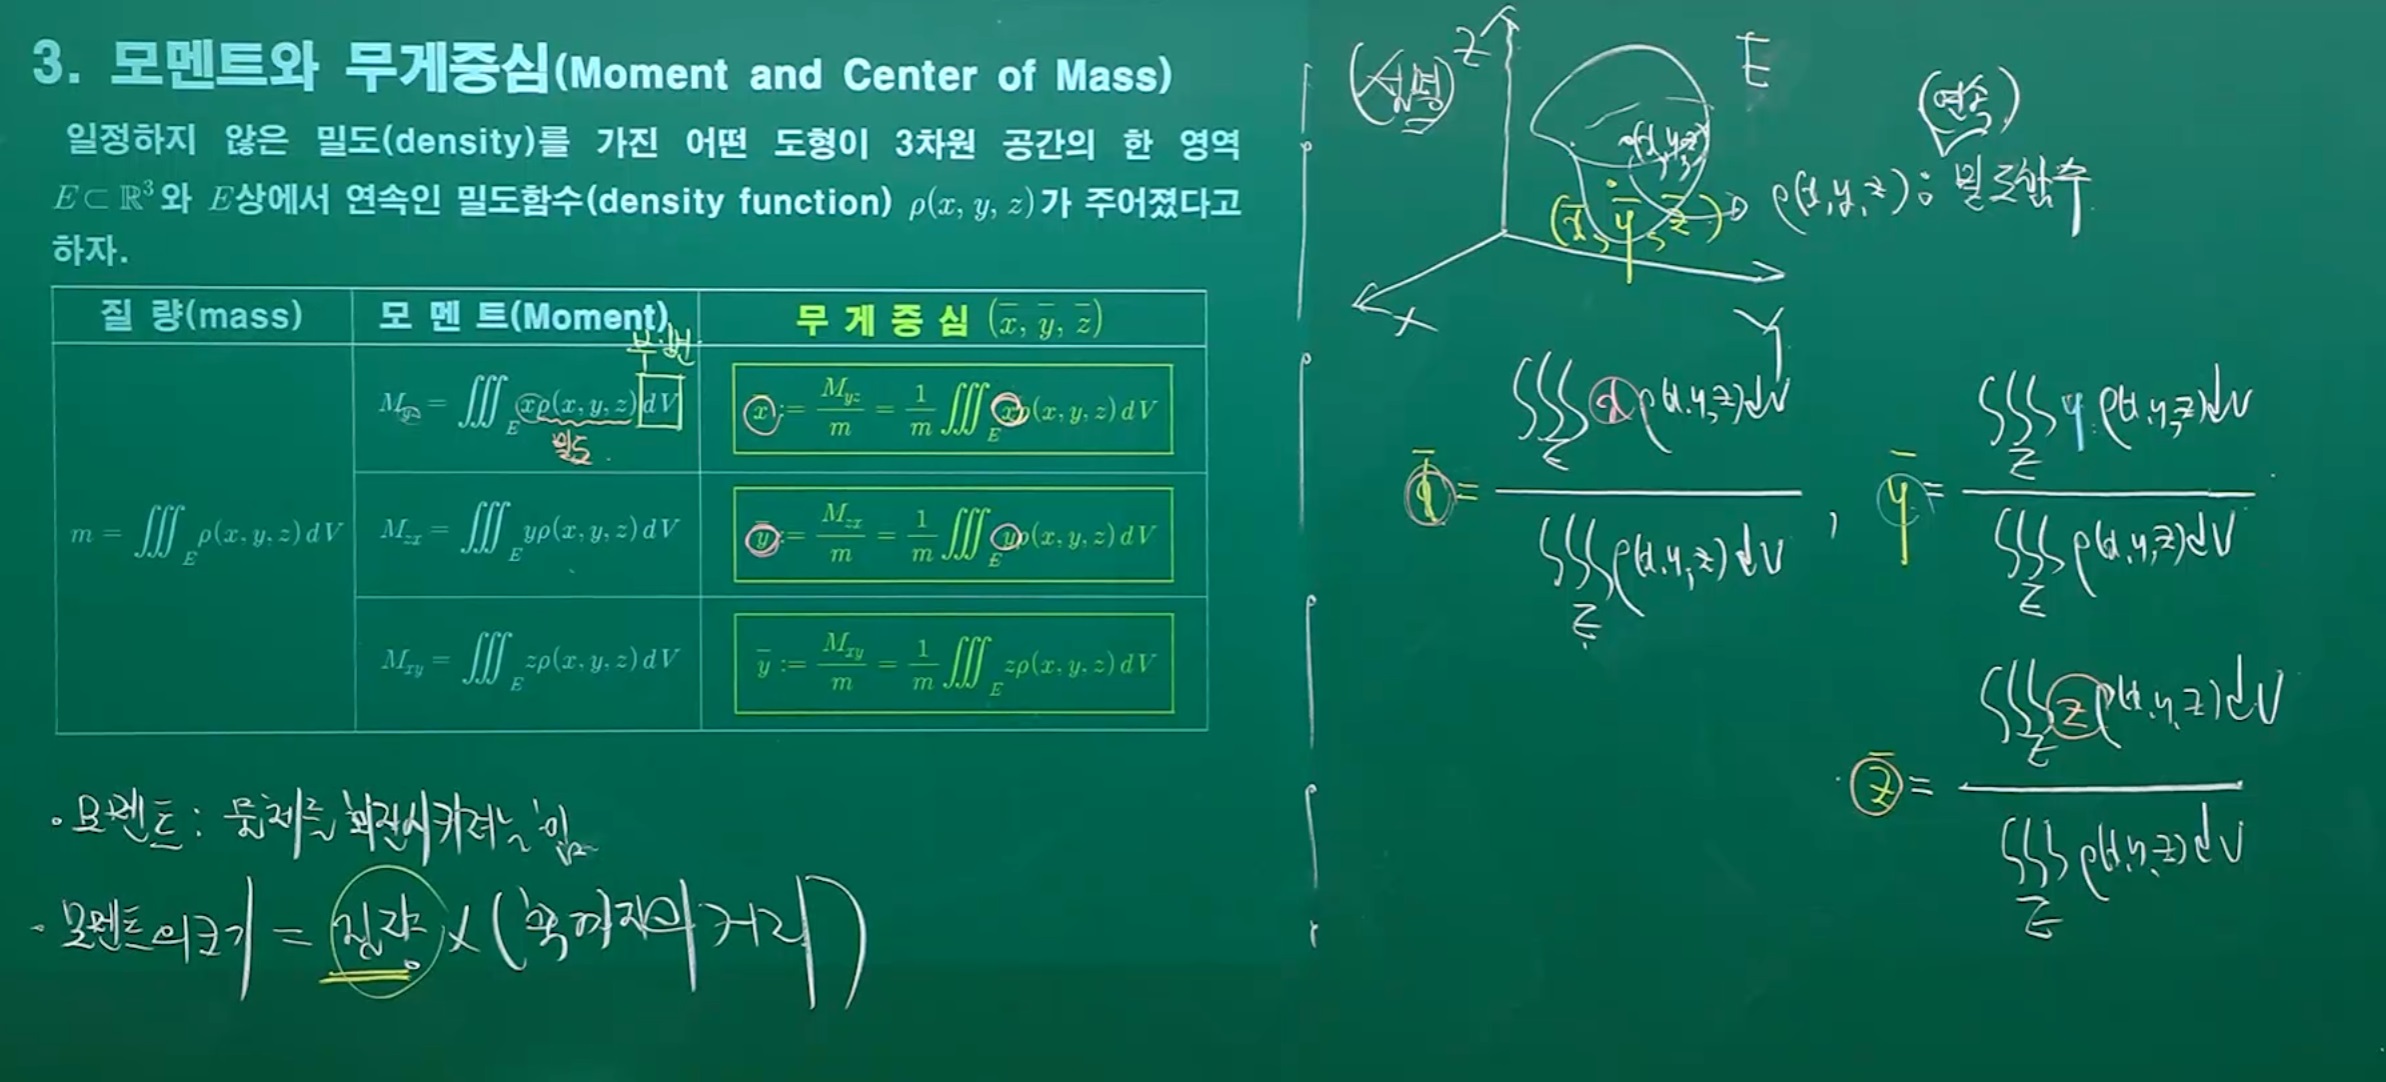 3. 모멘트와 무게중심(Moment and Center of Mass)
일정하지 않은 밀도(density)를 가진 어떤 도형이 3차원 공간의 한 영역
E⊂ℝ³와 E상에서 연속인 밀도함수(density function) ρ(x, y, z)가 주어졌다고
하자.
질 량(mass) 모 멘 트(Moment) 무 게 중 심 (x̄, ȳ, z̄)
부피
M_yz = ∭_E xρ(x, y, z) dV
밀도
x̄ := M_yz/m = 1/m ∭_E xρ(x, y, z) dV
m = ∭_E ρ(x, y, z) dV
M_zx = ∭_E yρ(x, y, z) dV
ȳ := M_zx/m = 1/m ∭_E yρ(x, y, z) dV
M_xy = ∭_E zρ(x, y, z) dV
ȳ := M_xy/m = 1/m ∭_E zρ(x, y, z) dV
· 모멘트 : 물체를 회전시키려는 힘
· 모멘트의 크기 = 질량 × (축까지의 거리)
(설명)
Z
E
(연속)
(x, y, z)
(x̄, ȳ, z̄)
ρ(x, y, z) : 밀도함수
X
Y
x̄ = ∭_E xρ(x, y, z) dV / ∭_E ρ(x, y, z) dV ,
ȳ = ∭_E yρ(x, y, z) dV / ∭_E ρ(x, y, z) dV
z̄ = ∭_E zρ(x, y, z) dV / ∭_E ρ(x, y, z) dV